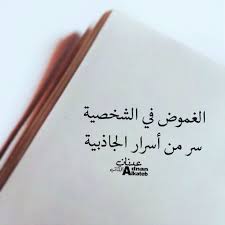 الغموض في الشخصية
سر من أسرار الجاذبية
عدنان الكاتب
Adnan
Alkateb